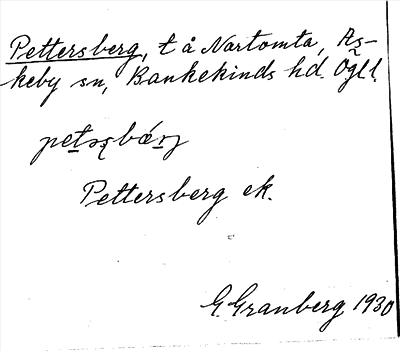 Pettersberg, t å Nartomta, As-
keby sn, Bankekinds hd. Ögl l.
Pettersberg ek.
G. Granberg 1930